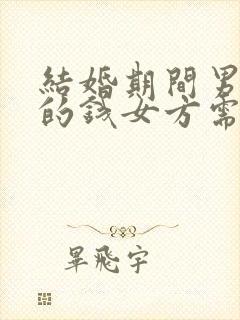 結婚期間男
的錢女方需
畢飛宇